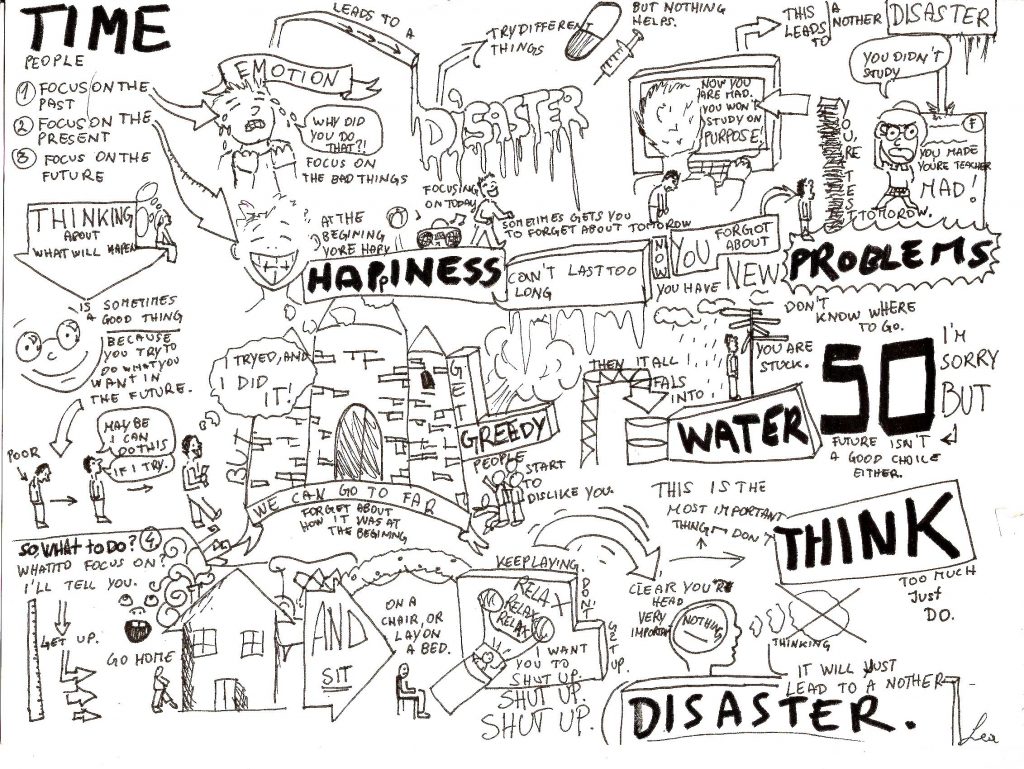 TIME
PEOPLE
1 FOCUS ON THE
PAST
2 FOCUS ON THE
PRESENT
3 FOCUS ON THE
FUTURE
EMOTION
WHY DID
YOU DO
THAT?!
FOCUS ON
THE BAD THINGS
LEADS TO
A
DISASTER
TRY DIFFERENT
THINGS
BUT NOTHING
HELPS.
NOW YOU
ARE MAD.
YOU WON'T
STUDY ON
PURPOSE!
THIS
LEADS
TO
A
NOTHER
DISASTER
YOU DIDN'T
STUDY
F
YOU MADE
YOURE TEACHER
MAD!
TOMOROW.
AT THE
BEGIMING
YORE HAPY
FOCUSING
ON TODAY
SOMETIMES GETS YOU
TO FORGET ABOUT TOMOROW
HAPPINESS
CAN'T LAST TOO
LONG
NOW
YOU
FORGOT
ABOUT
YOU HAVE
NEW
PROBLEMS
THINKING
ABOUT
WHAT WILL HAPEN
IS SOMETIMES
A GOOD THING
BECAUSE
YOU TRY TO
DO WHAT YOU
WANT IN
THE FUTURE.
POOR
MAYBE
I CAN
DO THIS
IF I TRY.
I TRYED, AND
I DID
IT!
WE CAN GO TO FAR
FORGET ABOUT
HOW IT WAS AT
THE BEGIMING
GUILT
GREEDY
PEOPLE
START
TO
DISLIKE YOU.
THEN IT ALL
FALS
INTO
WATER
YOU ARE
STUCK.
DON'T
KNOW WHERE
TO GO.
SO
I'M
SORRY
BUT
FUTURE ISN'T
A GOOD CHOICE
EITHER.
SO, WHAT TO DO? 4
WHAT TO FOCUS ON?
I'LL TELL YOU.
GET UP.
GO HOME
AND
SIT
ON A
CHAIR, OR
LAY ON
A BED.
KEEP LAYING.
DON'T
GET
UP.
RELAX
RELAX
RELAX
I WANT
YOU TO
SHUT UP.
SHUT UP.
SHUT UP.
CLEAR YOU'R
HEAD
VERY
IMPORTA
NOTHING
THIS IS THE
MOST IMPORTANT
THING → DON'T
THINK
TOO MUCH
JUST
DO.
THINKING
IT WILL JUST
LEAD TO A NOTHER
DISASTER.
Lea